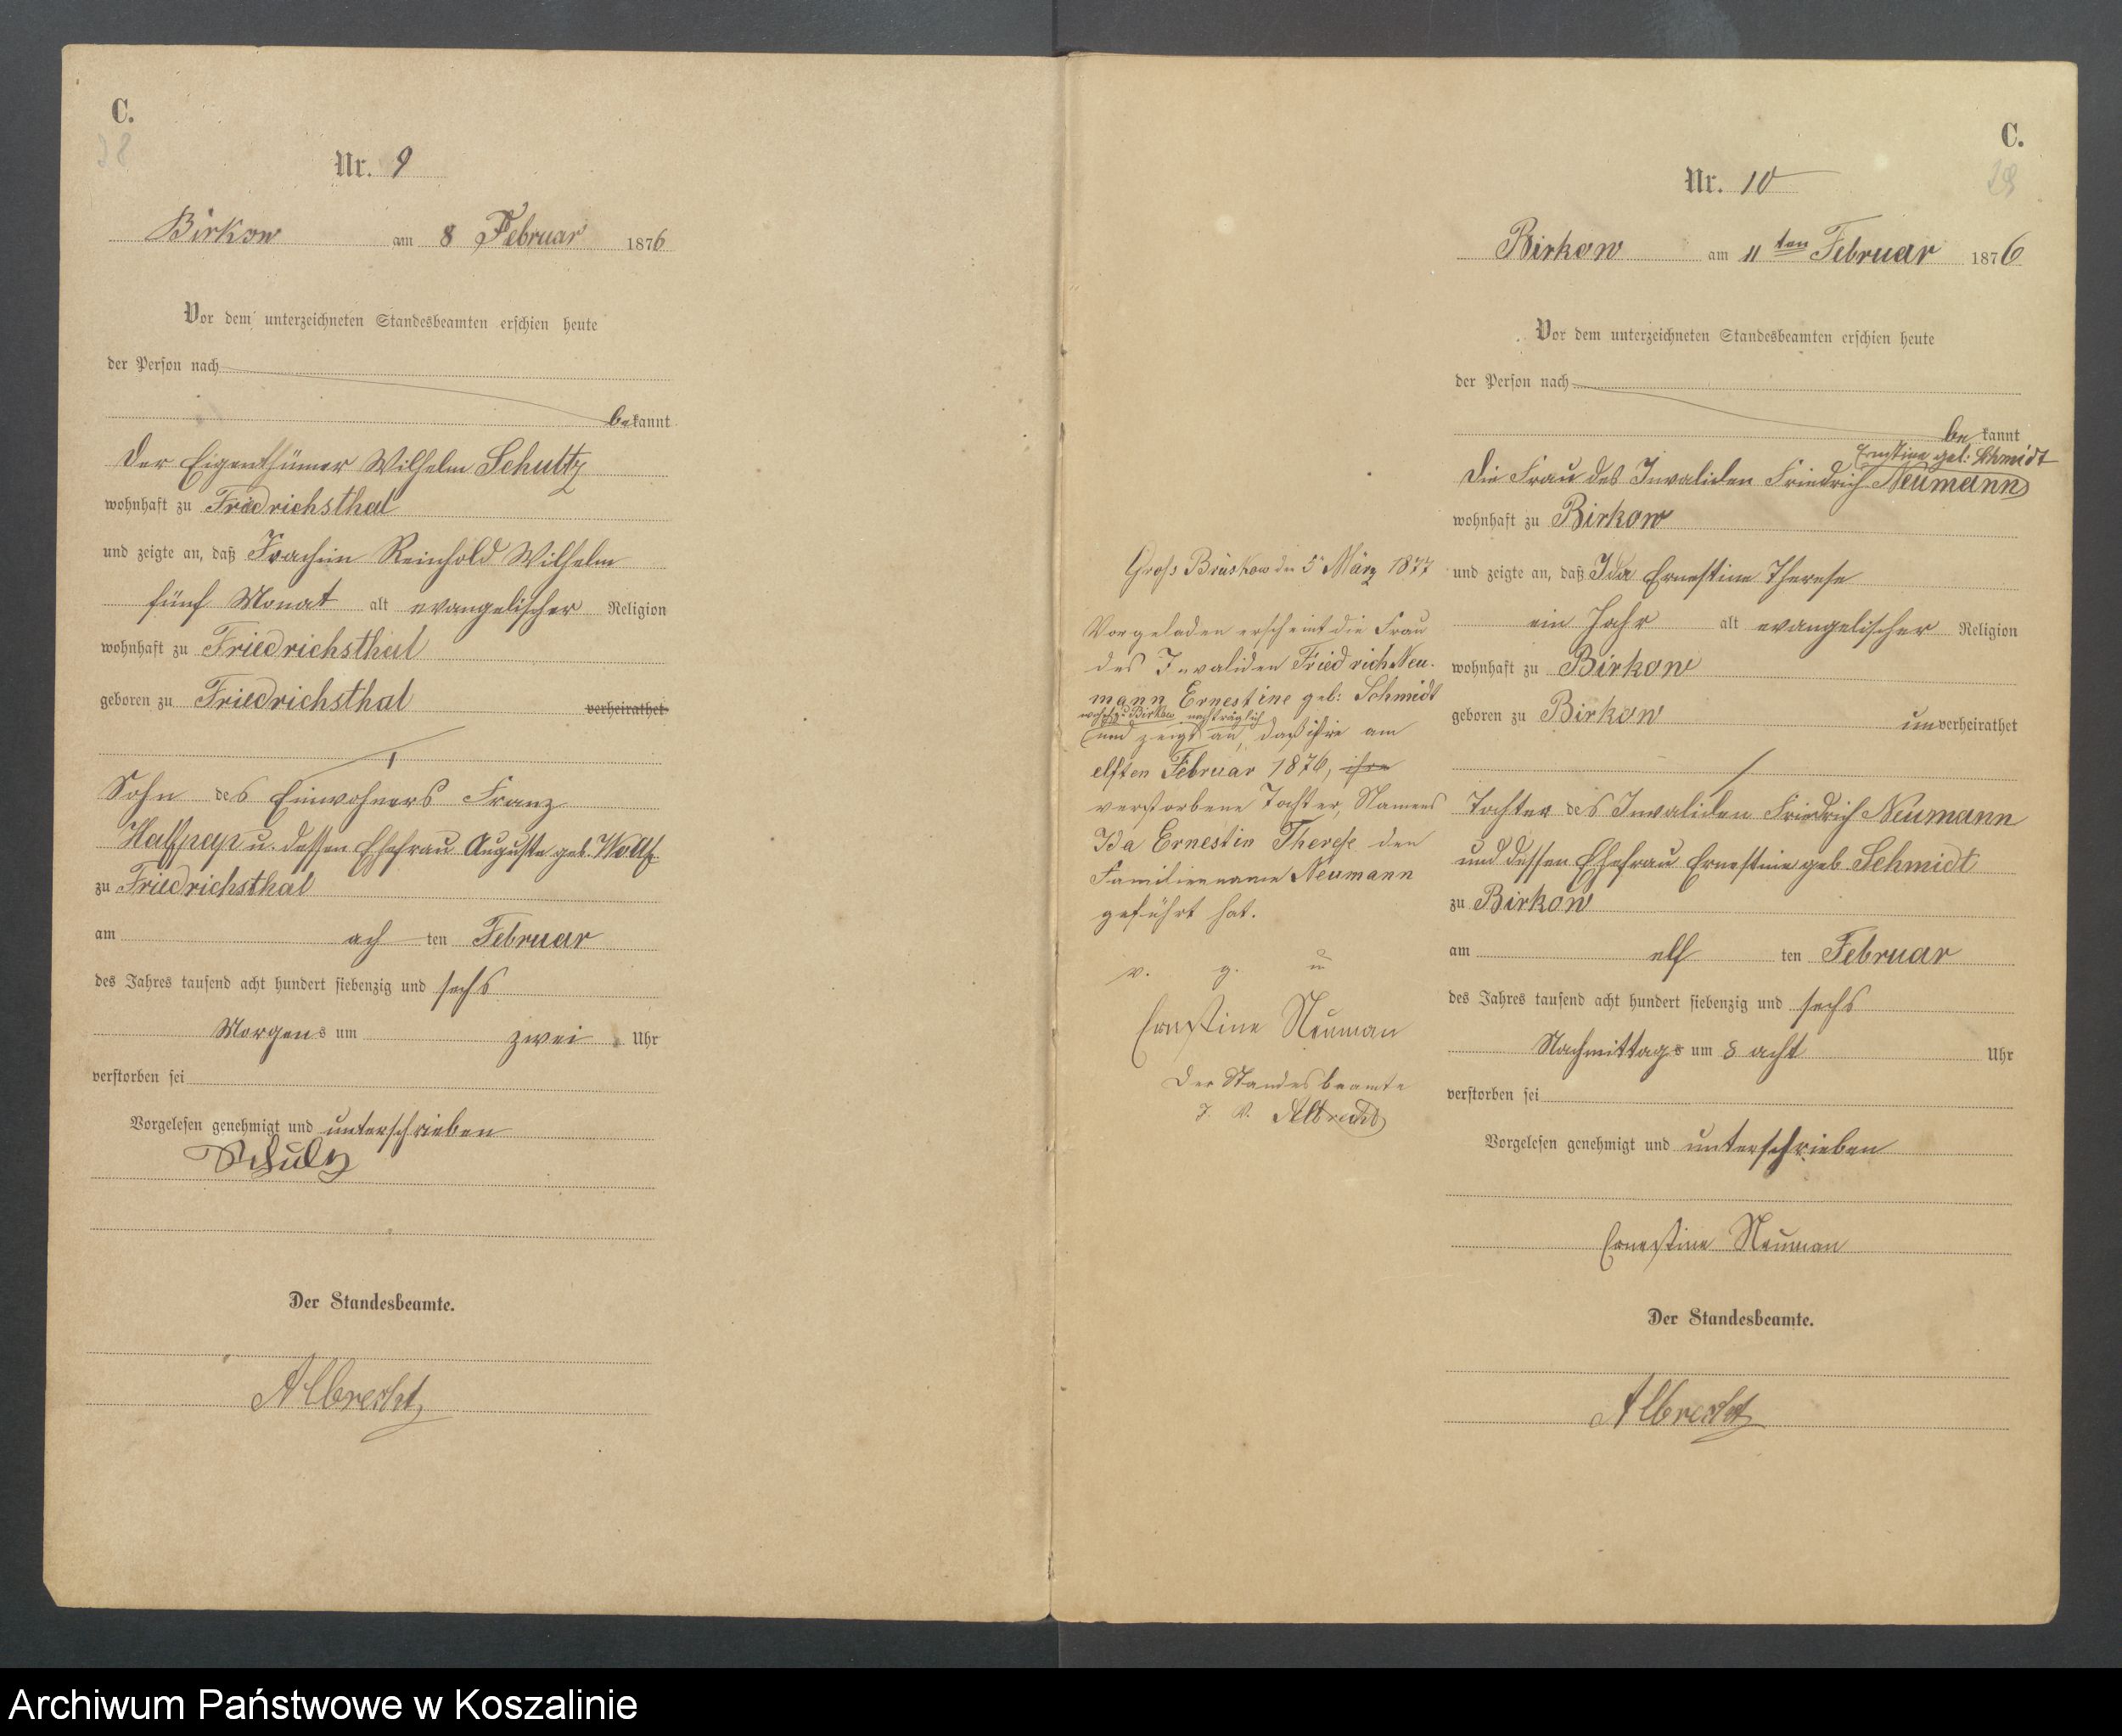 C.
38
Nr. 9
Birkow am 8 Februar 1876
Vor dem unterzeichneten Standesbeamten erschien heute
der Person nach
bekannt
der Eigenthümer Wilhelm Schultz
wohnhaft zu Friedrichsthal
und zeigte an, daß Joachim Reinhold Wilhelm
fünf Monat alt evangelischer Religion
wohnhaft zu Friedrichsthal
geboren zu Friedrichsthal verheirathet
Sohn des Einwohners Franz
Halfpap u. dessen Ehefrau Auguste geb.
zu Friedrichsthal
am ach ten Februar
des Jahres tausend acht hundert siebenzig und sechs
Morgens um zwei Uhr
verstorben sei
Vorgelesen genehmigt und unterschrieben
Schulz
Der Standesbeamte.
Albrecht
C.
Nr. 10
Birkow am 11ten Februar 1876
Vor dem unterzeichneten Standesbeamten erschien heute
der Person nach
be kannt
Ernstine geb: Schmidt
die Frau des Invaliden Friedrich Neumann
wohnhaft zu Birkow
und zeigte an, daß Ida Ernestine Therese
ein Jahr alt evangelischer Religion
wohnhaft zu Birkow
geboren zu Birkow unverheirathet
Tochter des Invaliden Friedrich Neumann
und dessen Ehefrau Ernestine geb Schmidt
zu Birkow
am elf ten Februar
des Jahres tausend acht hundert siebenzig und sechs
Nachmittags um 8 acht Uhr
verstorben sei
Vorgelesen genehmigt und unterschrieben
Ernestine Neuman
Der Standesbeamte.
Albrecht
Gross Brüskow den 5 März 1877
Vorgeladen erscheint die Frau
des Invaliden Friedrich Neu-
mann Ernestine geb: Schmidt
wohnh. zu Birkow nachträglich
und zeigt an, daß ihre am
elften Februar 1876, ihre
verstorbene Tochter, Namens
Ida Ernestin Therese den
Familienname Neumann
geführt hat.
v. g. u
Ernestine Neuman
Der Standesbeamte
J. V. Albrecht
Archiwum Państwowe w Koszalinie